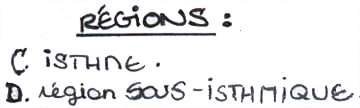 RÉGIONS :
C. ISTHME.
D. région SOUS-ISTHMIQUE